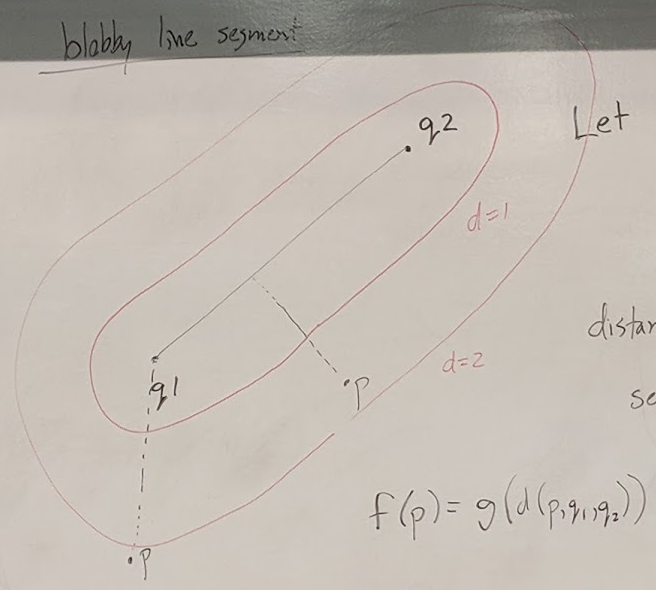 blobby line segment
q2
Let
d=1
d=2
q1
p
f(p) = g(d(p,q1,q2))
p